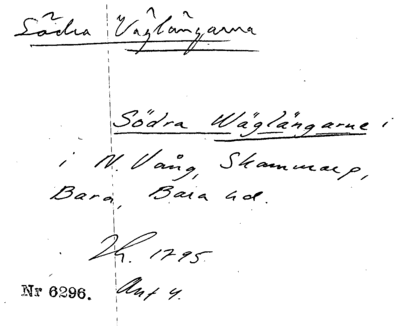 Södra Väglångarna
Södra Wäglängarne i
i N. Vång, Skammarp,
Bara, Bara hd.
Sk. 1795.
Nr 6296. Akt 4.